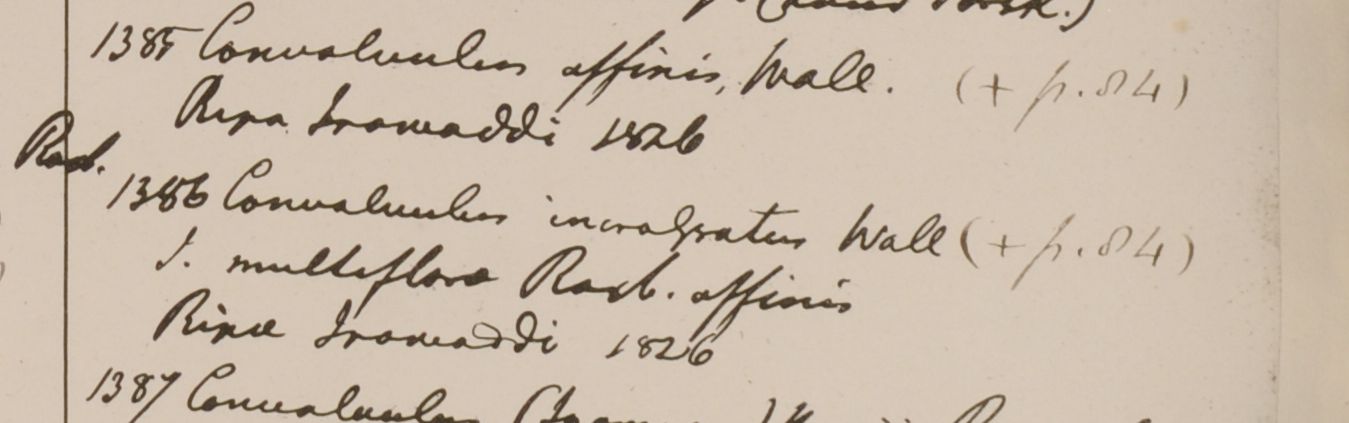 1385 Convolvulus affinis, Wall. (+ p. 84)
Ripa Irawaddi 1826
Roxb.
1386 Convolvulus incrassatus Wall (+ p. 84)
I. multiflora Roxb. affinis
Ripae Irawaddi 1826
1387 Convolvulus